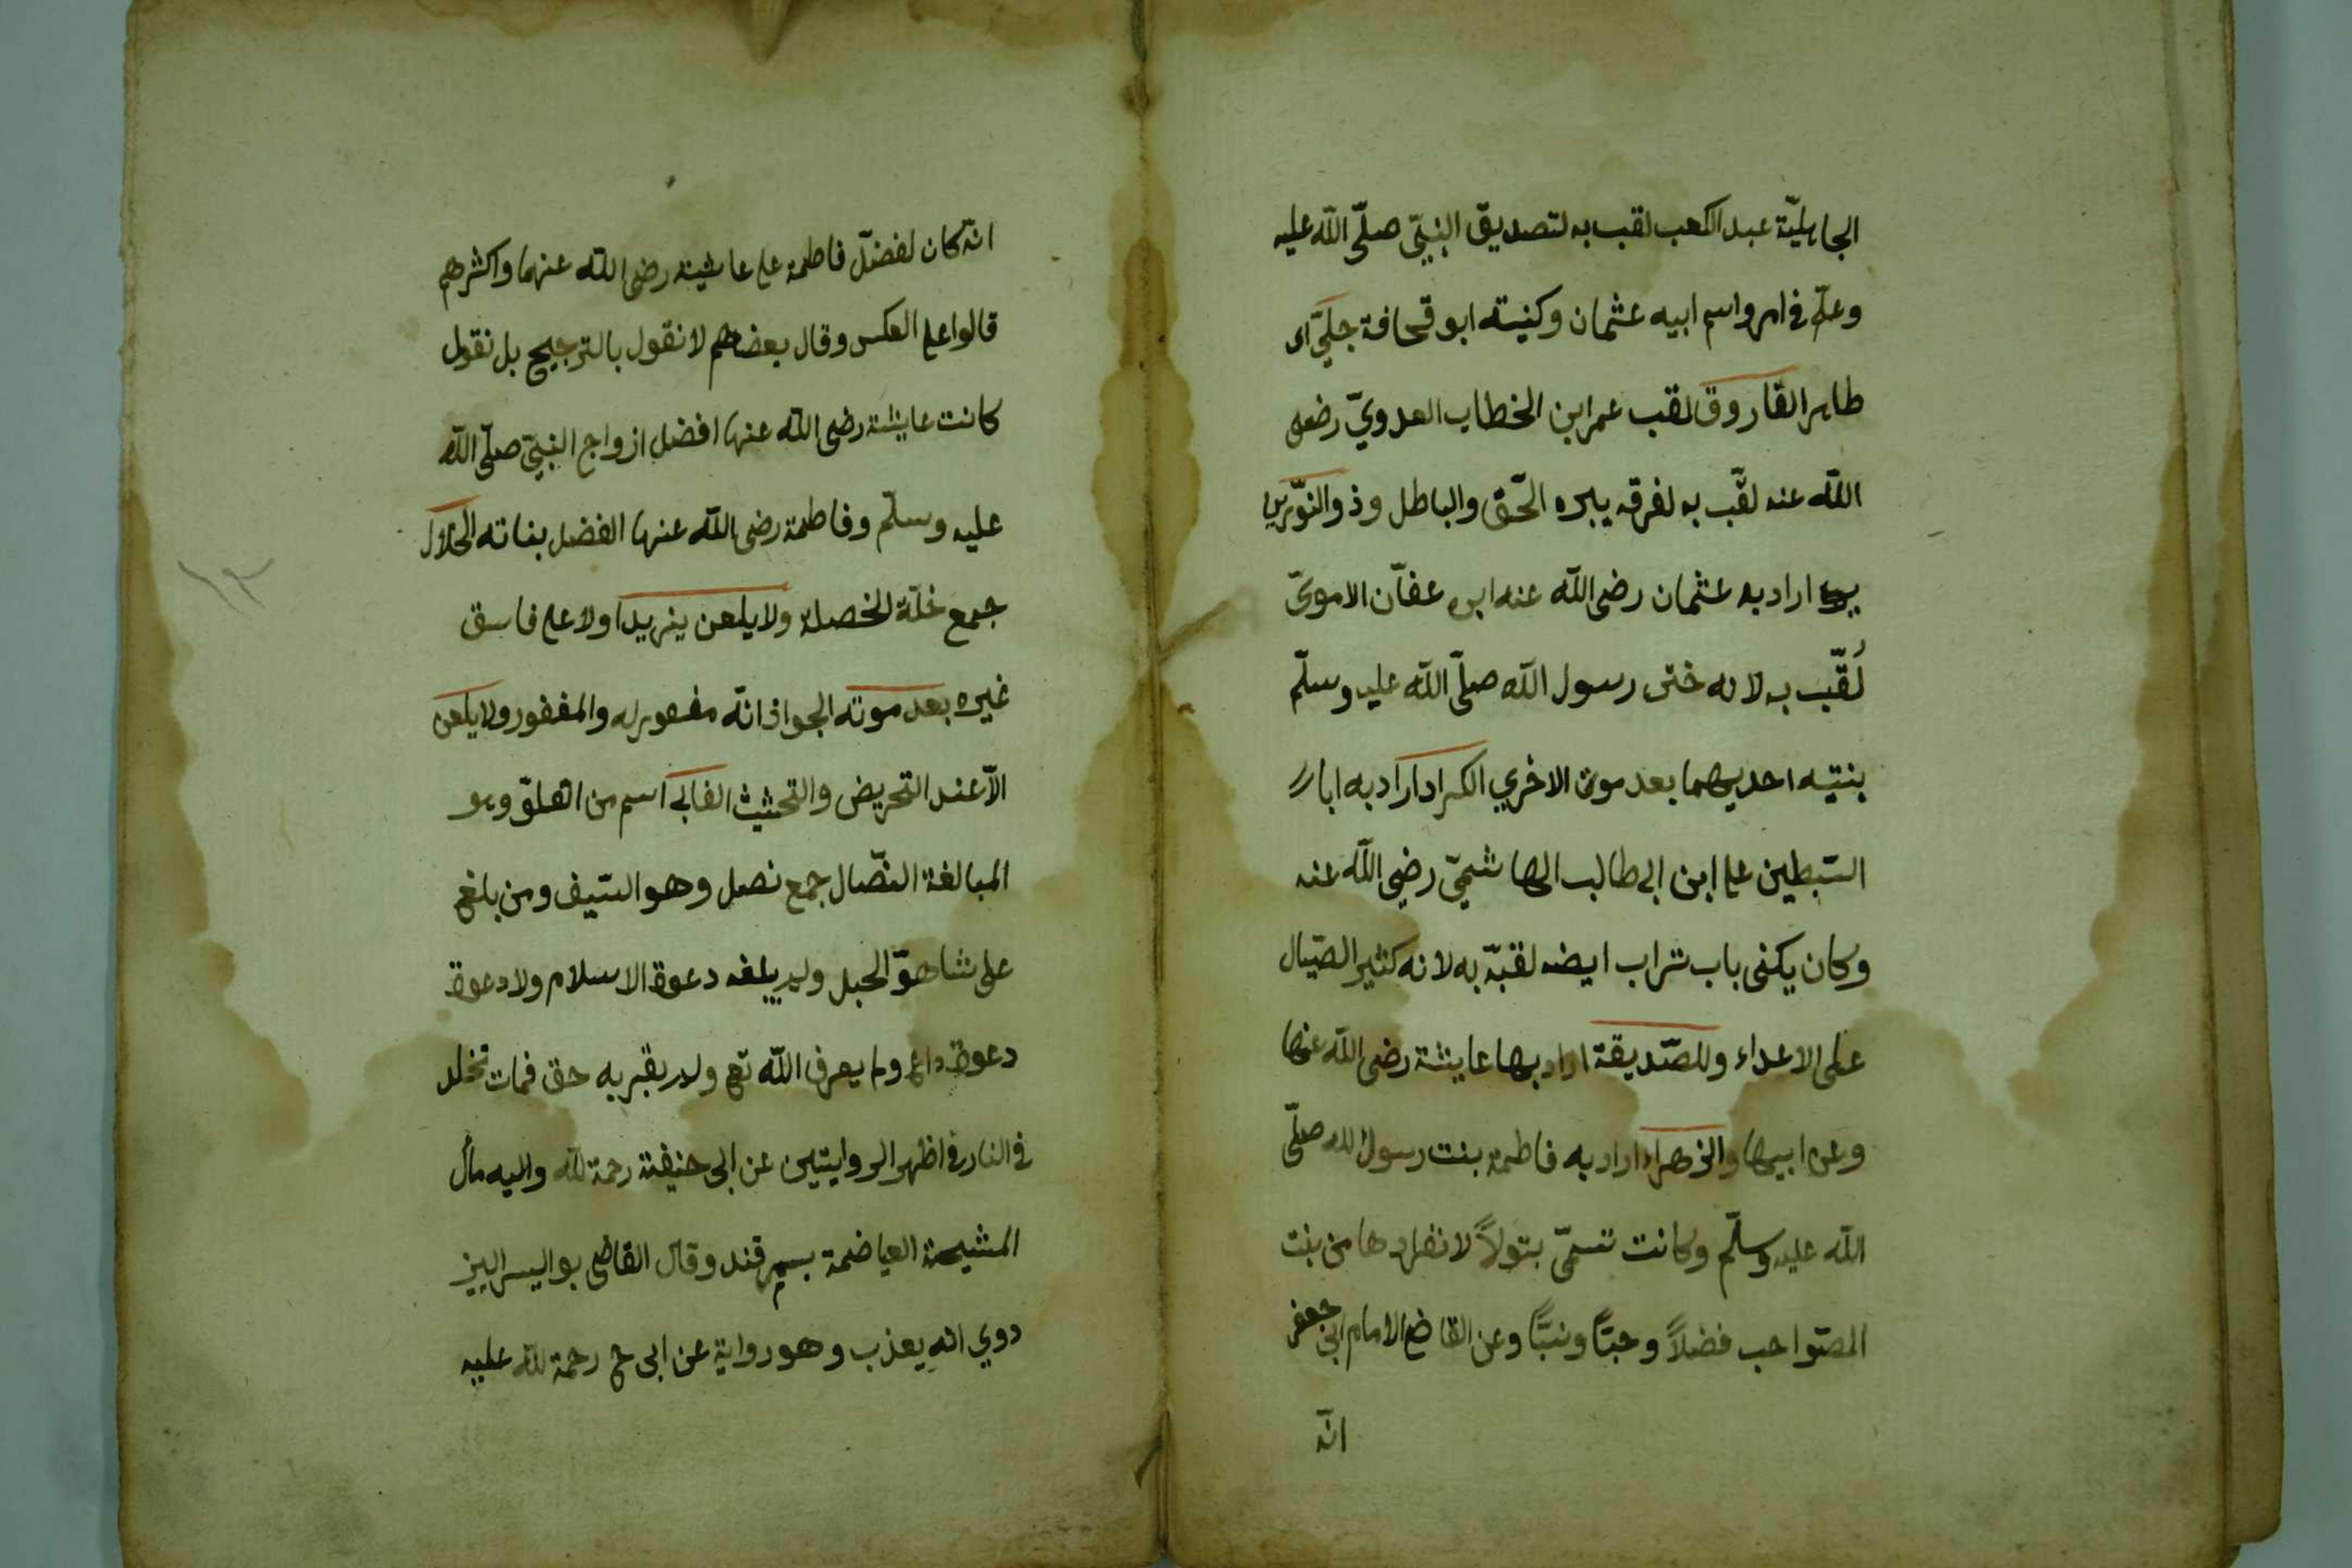 الجاهليّة عبد الكعب لقب به لتصديق النبيّ صلّى الله عليه
وعلّم في امر واسم ابيه عثمان وكنيته ابو قحافة جليّ اى
ظاهر الفاروق لقب عمر ابن الخطاب العدويّ رضى
الله عنه لقّب به لفرقه بين الحّق والباطل وذو النّورين
اراد به عثمان رضى الله عنه ابن عفّان الاموىّ
لُقّب به لانه ختن رسول الله صلّى الله عليه وسلّم
بنتيه احديهما بعد موت الاخري الكرار اراد به ابا
السّبطين على ابن ابى طالب الهاشميّ رضي الله عنه
وكان يكنى باب تراب ايضه لقبّه به لانه كثير الصّيال
على الاعداء وللصّديقة اراد بها عايشة رضى الله عنها
وعن ابيها والزهراء اراد به فاطمة بنت رسول الله صلّى
الله عليه وسلّم وكانت تسمّى بتولاً لانفرادها من بنت
الصّواحب فضلاً وحبًّا ونبًّا وعن القاضي الامام ابى جعفر
انّه
انّه كان لفضّل فاطمة على عايشة رضى الله عنهما واكثرهم
قالوا على العكس وقال بعضهم لا نقول بالترجيح بل نقول
كانت عايشة رضى الله عنها افضل ازواج النبيّ صلّى الله
عليه وسلّم وفاطمة رضى الله عنها الفضل بناته الخلال
جمع خلّة الخصلة ولا يلعن يزيدا ولا على فاسق
غيره بعد موته الجواز انّه مغفور له والمغفور ولا يلعن
الاّ عند التحريض والتحثيث الغالى اسم من الغلوّ وهو
المبالغة النصّال جمع نصل وهو السّيف ومن بلغ
على شاهق الجبل ولم يبلغه دعوة الاسلام ولا دعوة
دعوة داع ولم يعرف الله تع ولم يقر به حق فمات تخلد
في النار في اظهر الروايتين عن ابى حنيفة رحمة الله واليه مال
المشيحة العياضمة بسمرقند وقال القاضى بو اليسر البز
دوي انه يعذب وهو رواية عن ابى ح رحمة الله عليه
١٣